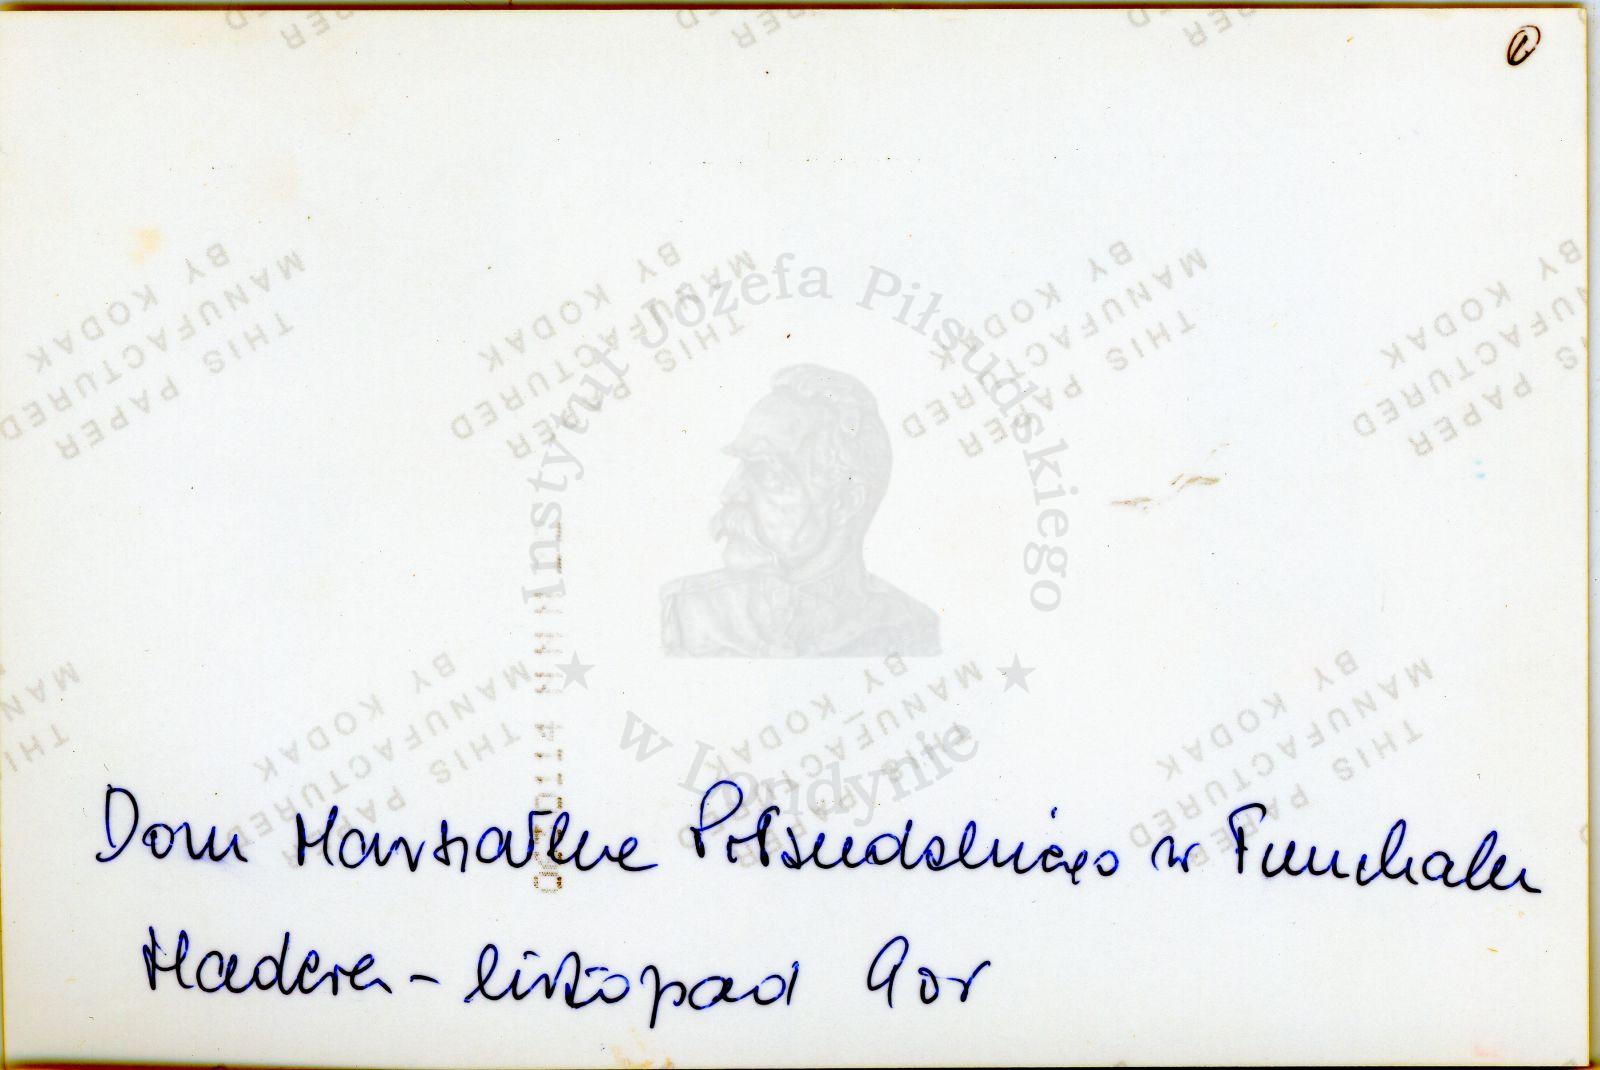 1
PAPER
BY KODAK
THIS PAPER
MANUFACTURED
BY KODAK
THIS PAPER
MANUFACTURED
BY KODAK
THIS PAPER
MANUFACTURED
BY KODAK
THIS PAPER
MANUFACTURED
BY KODAK
Instytut Józefa Piłsudskiego
w Londynie
THIS PAPER
MANUFACTURED
BY KODAK
THIS PAPER
MANUFACTURED
BY KODAK
THIS PAPER
MANUFACTURED
BY KODAK
Dom Marszałka Piłsudskiego w Funchalu
Madera - listopad 90r